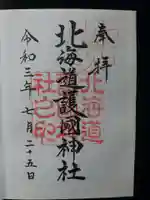 奉拝
北海道護國神社
北海道
社之印
令和三年七月二十五日